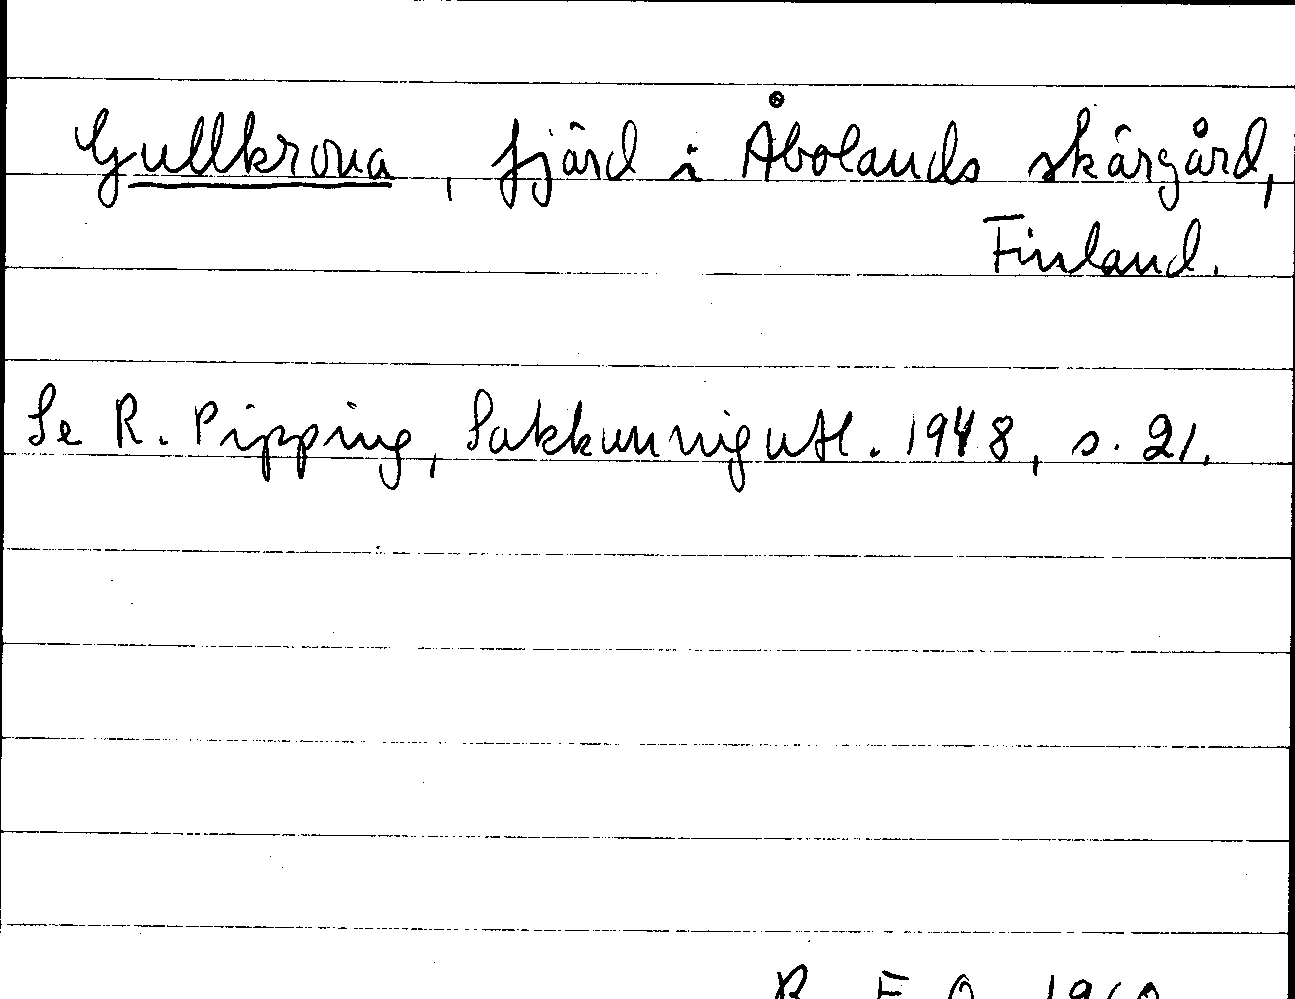 Gullkrona, fjärd i Åbolands skärgård,
Finland.
Se R. Pipping, Sakkunnigutl. 1948, s. 21.